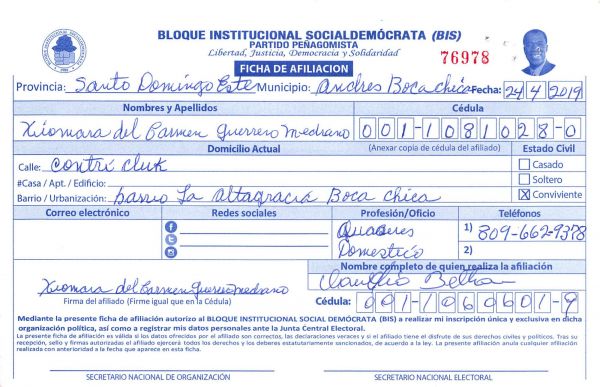 BLOQUE INSTITUCIONAL SOCIALDEMÓCRATA (BIS)
PARTIDO PEÑAGOMISTA
Libertad, Justicia, Democracia y Solidaridad
76978
FICHA DE AFILIACION
Provincia: Santo Domingo Este Municipio: Andres Boca chica Fecha: 24 4 2019
Nombres y Apellidos Cédula
Xiomara del Carmen Guerrero Medrano 001-1081028-0
Domicilio Actual (Anexar copia de cédula del afiliado) Estado Civil
Calle: contri cluk Casado
#Casa / Apt. / Edificio: Soltero
Barrio / Urbanización: barrio La altagracia Boca chica X Conviviente
Correo electrónico Redes sociales Profesión/Oficio Teléfonos
Quaeres 1) 809-662-9378
Domestico 2)
Nombre completo de quien realiza la afiliación
Xiomara del Carmen Guerrero medrano Claudio
Firma del afiliado (Firme igual que en la Cédula) Cédula: 001-1060601-9
Mediante la presente ficha de afiliación autorizo al BLOQUE INSTITUCIONAL SOCIAL DEMÓCRATA (BIS) a realizar mi inscripción única y exclusiva en dicha
organización política, así como a registrar mis datos personales ante la Junta Central Electoral.
La presente ficha de afiliación es válida si los datos ofrecidos por el afiliado son correctos, las declaraciones veraces y si el afiliado tiene el disfrute de sus derechos civiles y políticos. Tras su
recepción, sello y firmas autorizadas el afiliado ejercerá todos los derechos y los deberes estatutariamente sancionados, de acuerdo a la ley. La presente afiliación anula cualquier afiliación
realizada con anterioridad a la fecha que aparece en esta ficha.
SECRETARIO NACIONAL DE ORGANIZACIÓN SECRETARIO NACIONAL ELECTORAL